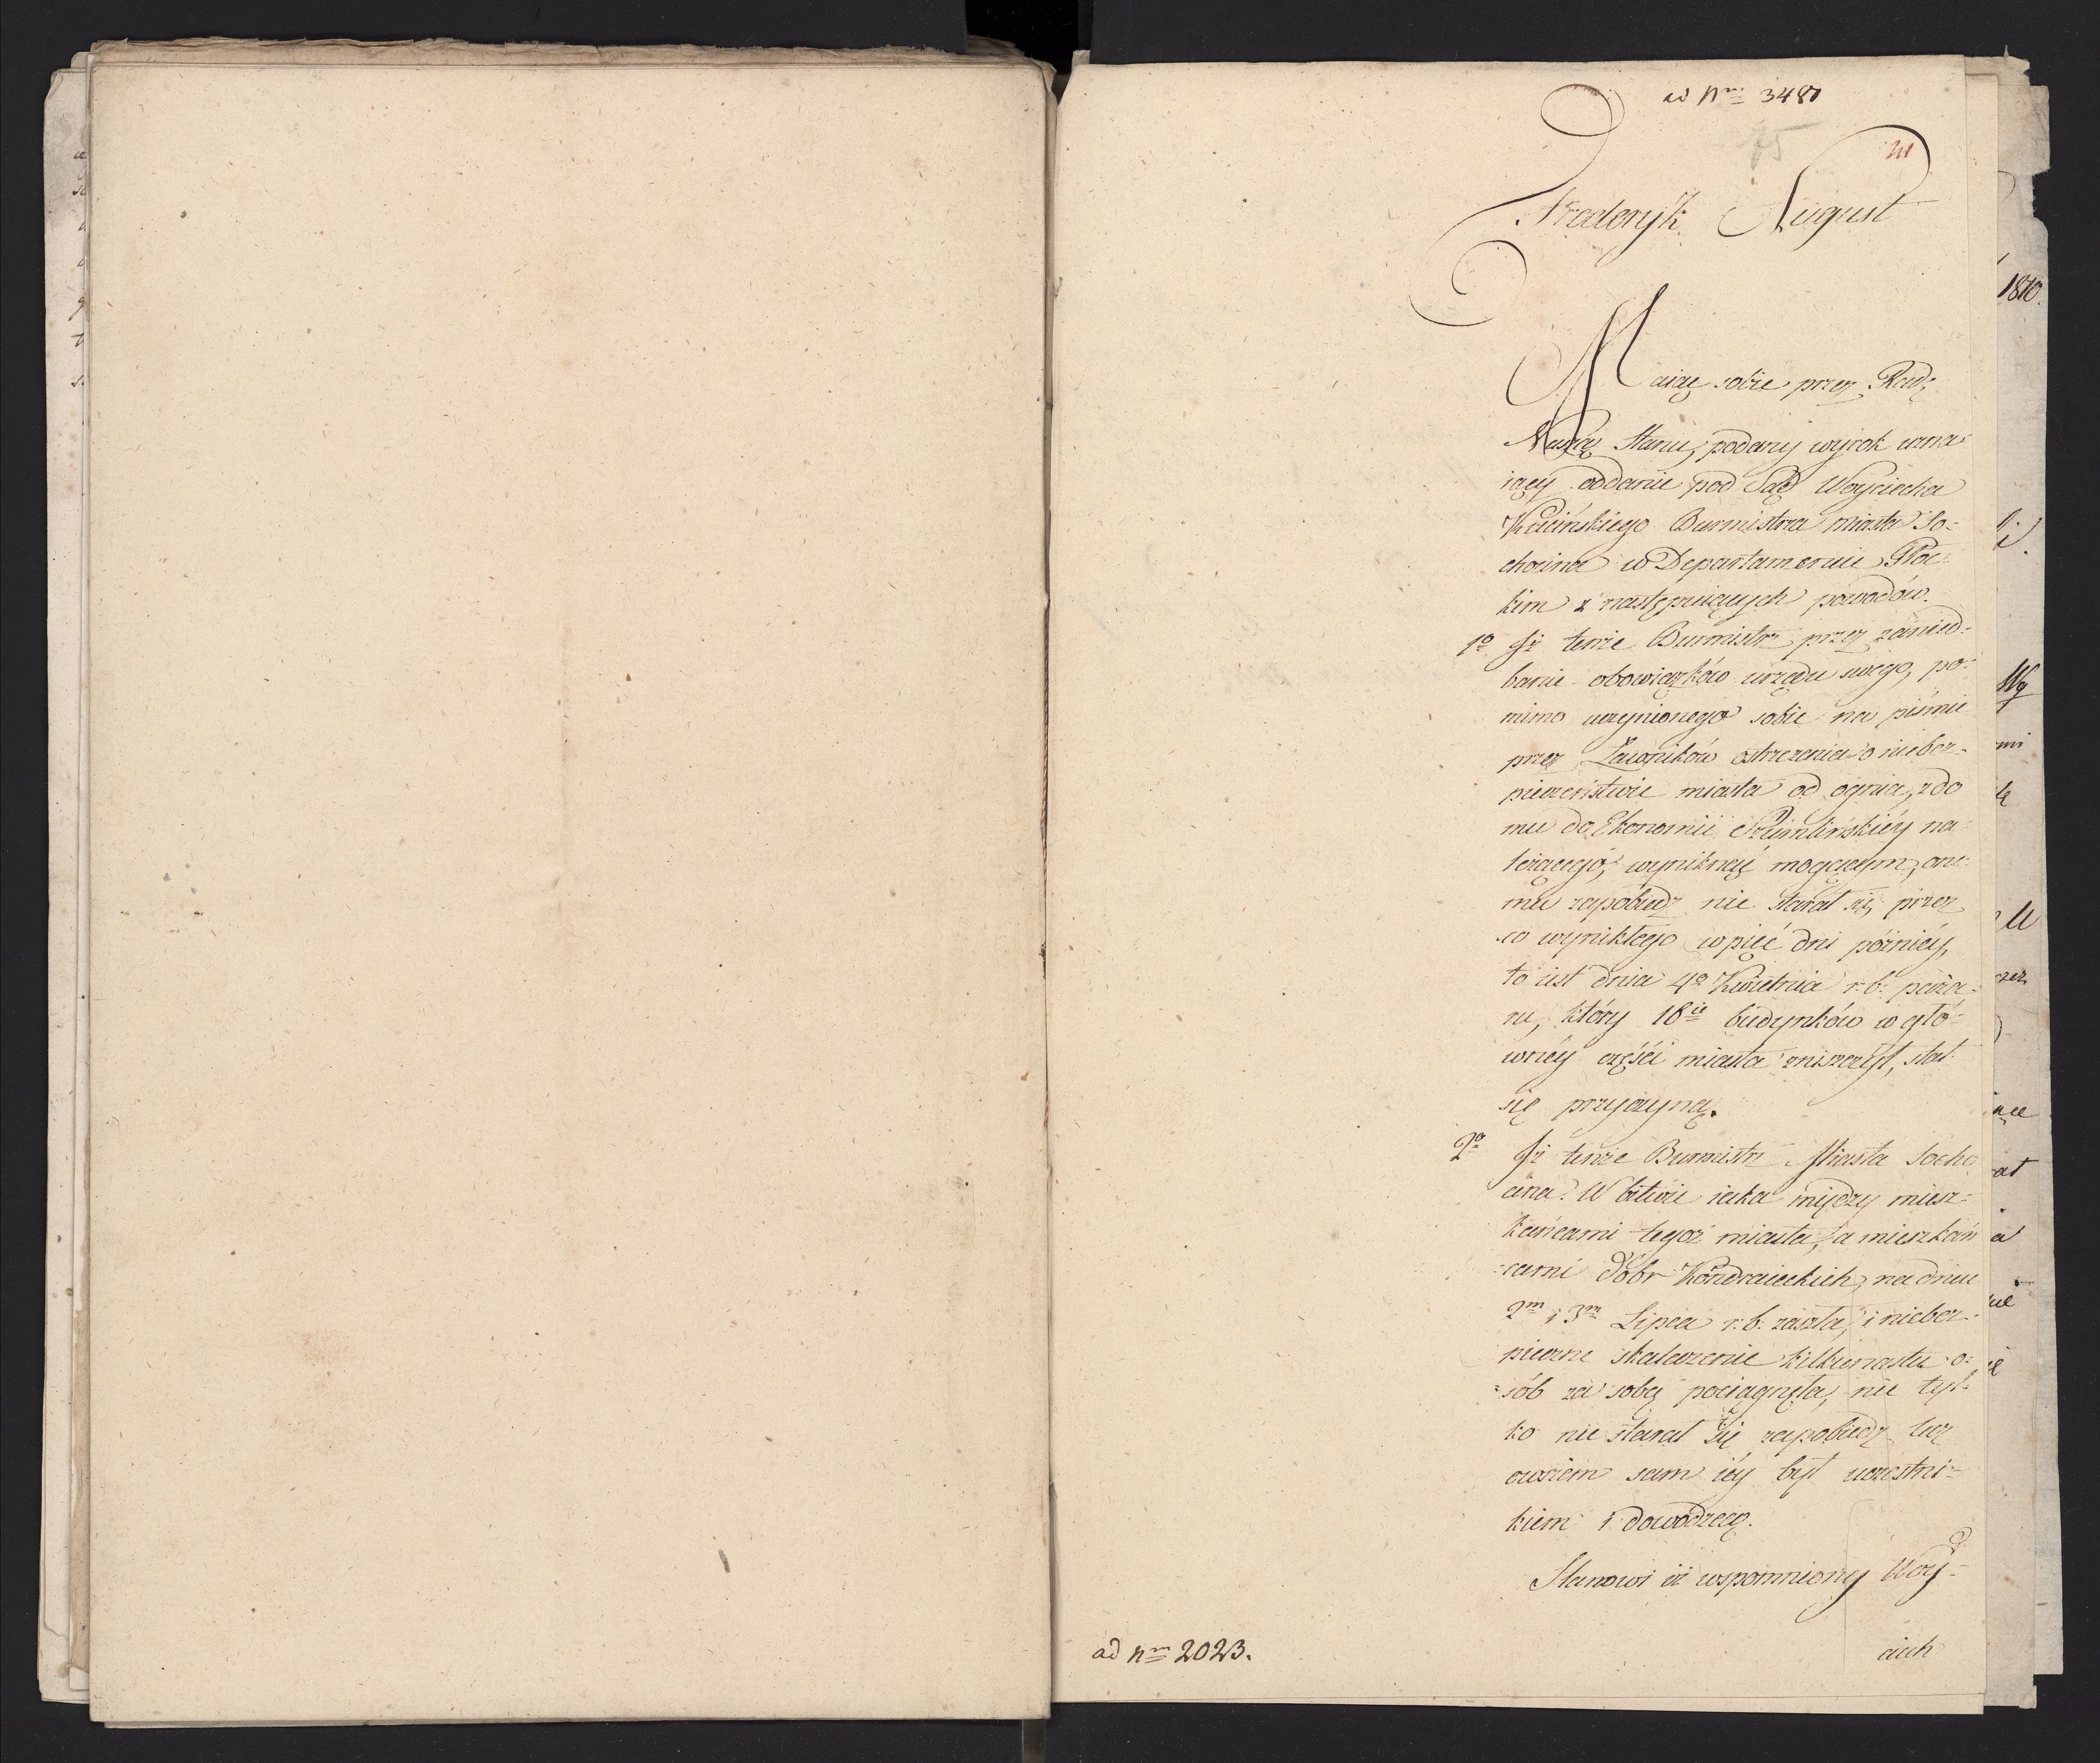 ad Nrm 3487
75
Frederyk August
Maiąc sobie przez Radę
Naszą Stanu, podany wyrok uzna-
iący oddanie pod Sąd Woyciecha
Kucińskiego Burmistrza miasta So-
chocina w Departamencie Płoc-
kim z następuiących powodów.
1o Iż tenże Burmistrz przez zanied-
banie obowiązków urzędu swego, po-
mimo uczynionego sobie na piśmie
przez Ławników ostrzeżenia o niebez-
pieczeństwie miasta od ognia, z do
mu do Ekonomii Szumlińskiéy na
leżącego, wyniknąć mogącym, one-
mu zapobiedz nie starał się, przez
co wynikłego w pięć dni późniéy,
to iest dnia 4o Kwietnia r: b: poża-
ru, który 18ie budynków w głó-
wnéy części miasta zniszczył, stał
się przyczyną.
2o Iż tenże Burmistrz Miasta Socho
cina. W bitwie iaka między miesz-
kańcami tegoż miasta, a mieszkań
cami dóbr Kondraieckich, na dniu
2m i 3m Lipca r: b: zaszła, i niebez-
pieczne skaleczenie kilkunastu o-
sób za sobą pociągnęła, nie tyl-
ko nie starał się zapobiedz lecz
owszem sam iéy był uczestni-
kiem i dowódzcą.
Stanowi iż wspomniony Woy-
ciech
ad nrm 2023.
1810.